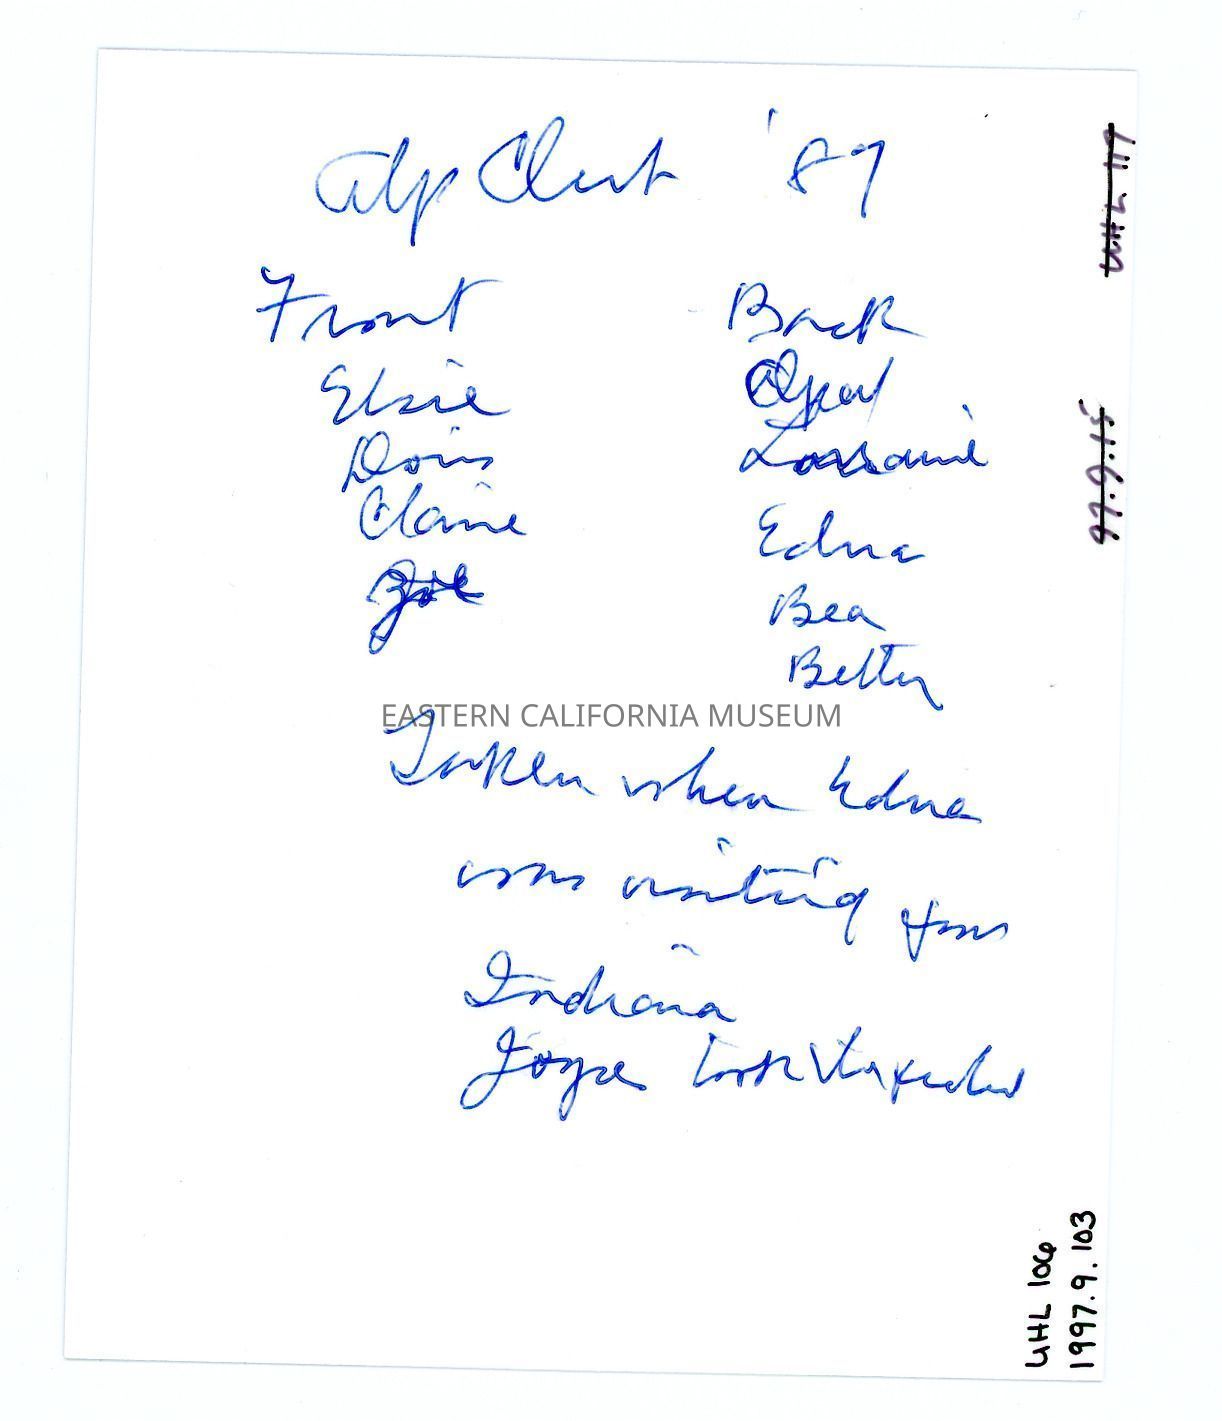 Alp Club '87
Front
Elsie
Doris
Claire
Zoe
Back
Opal
Lorraine
Edna
Bea
Betty
EASTERN CALIFORNIA MUSEUM
Taken when Edna
was visiting from
Indiana
Joyce took the picture
UHL 106
1997.9.103
97.9.15